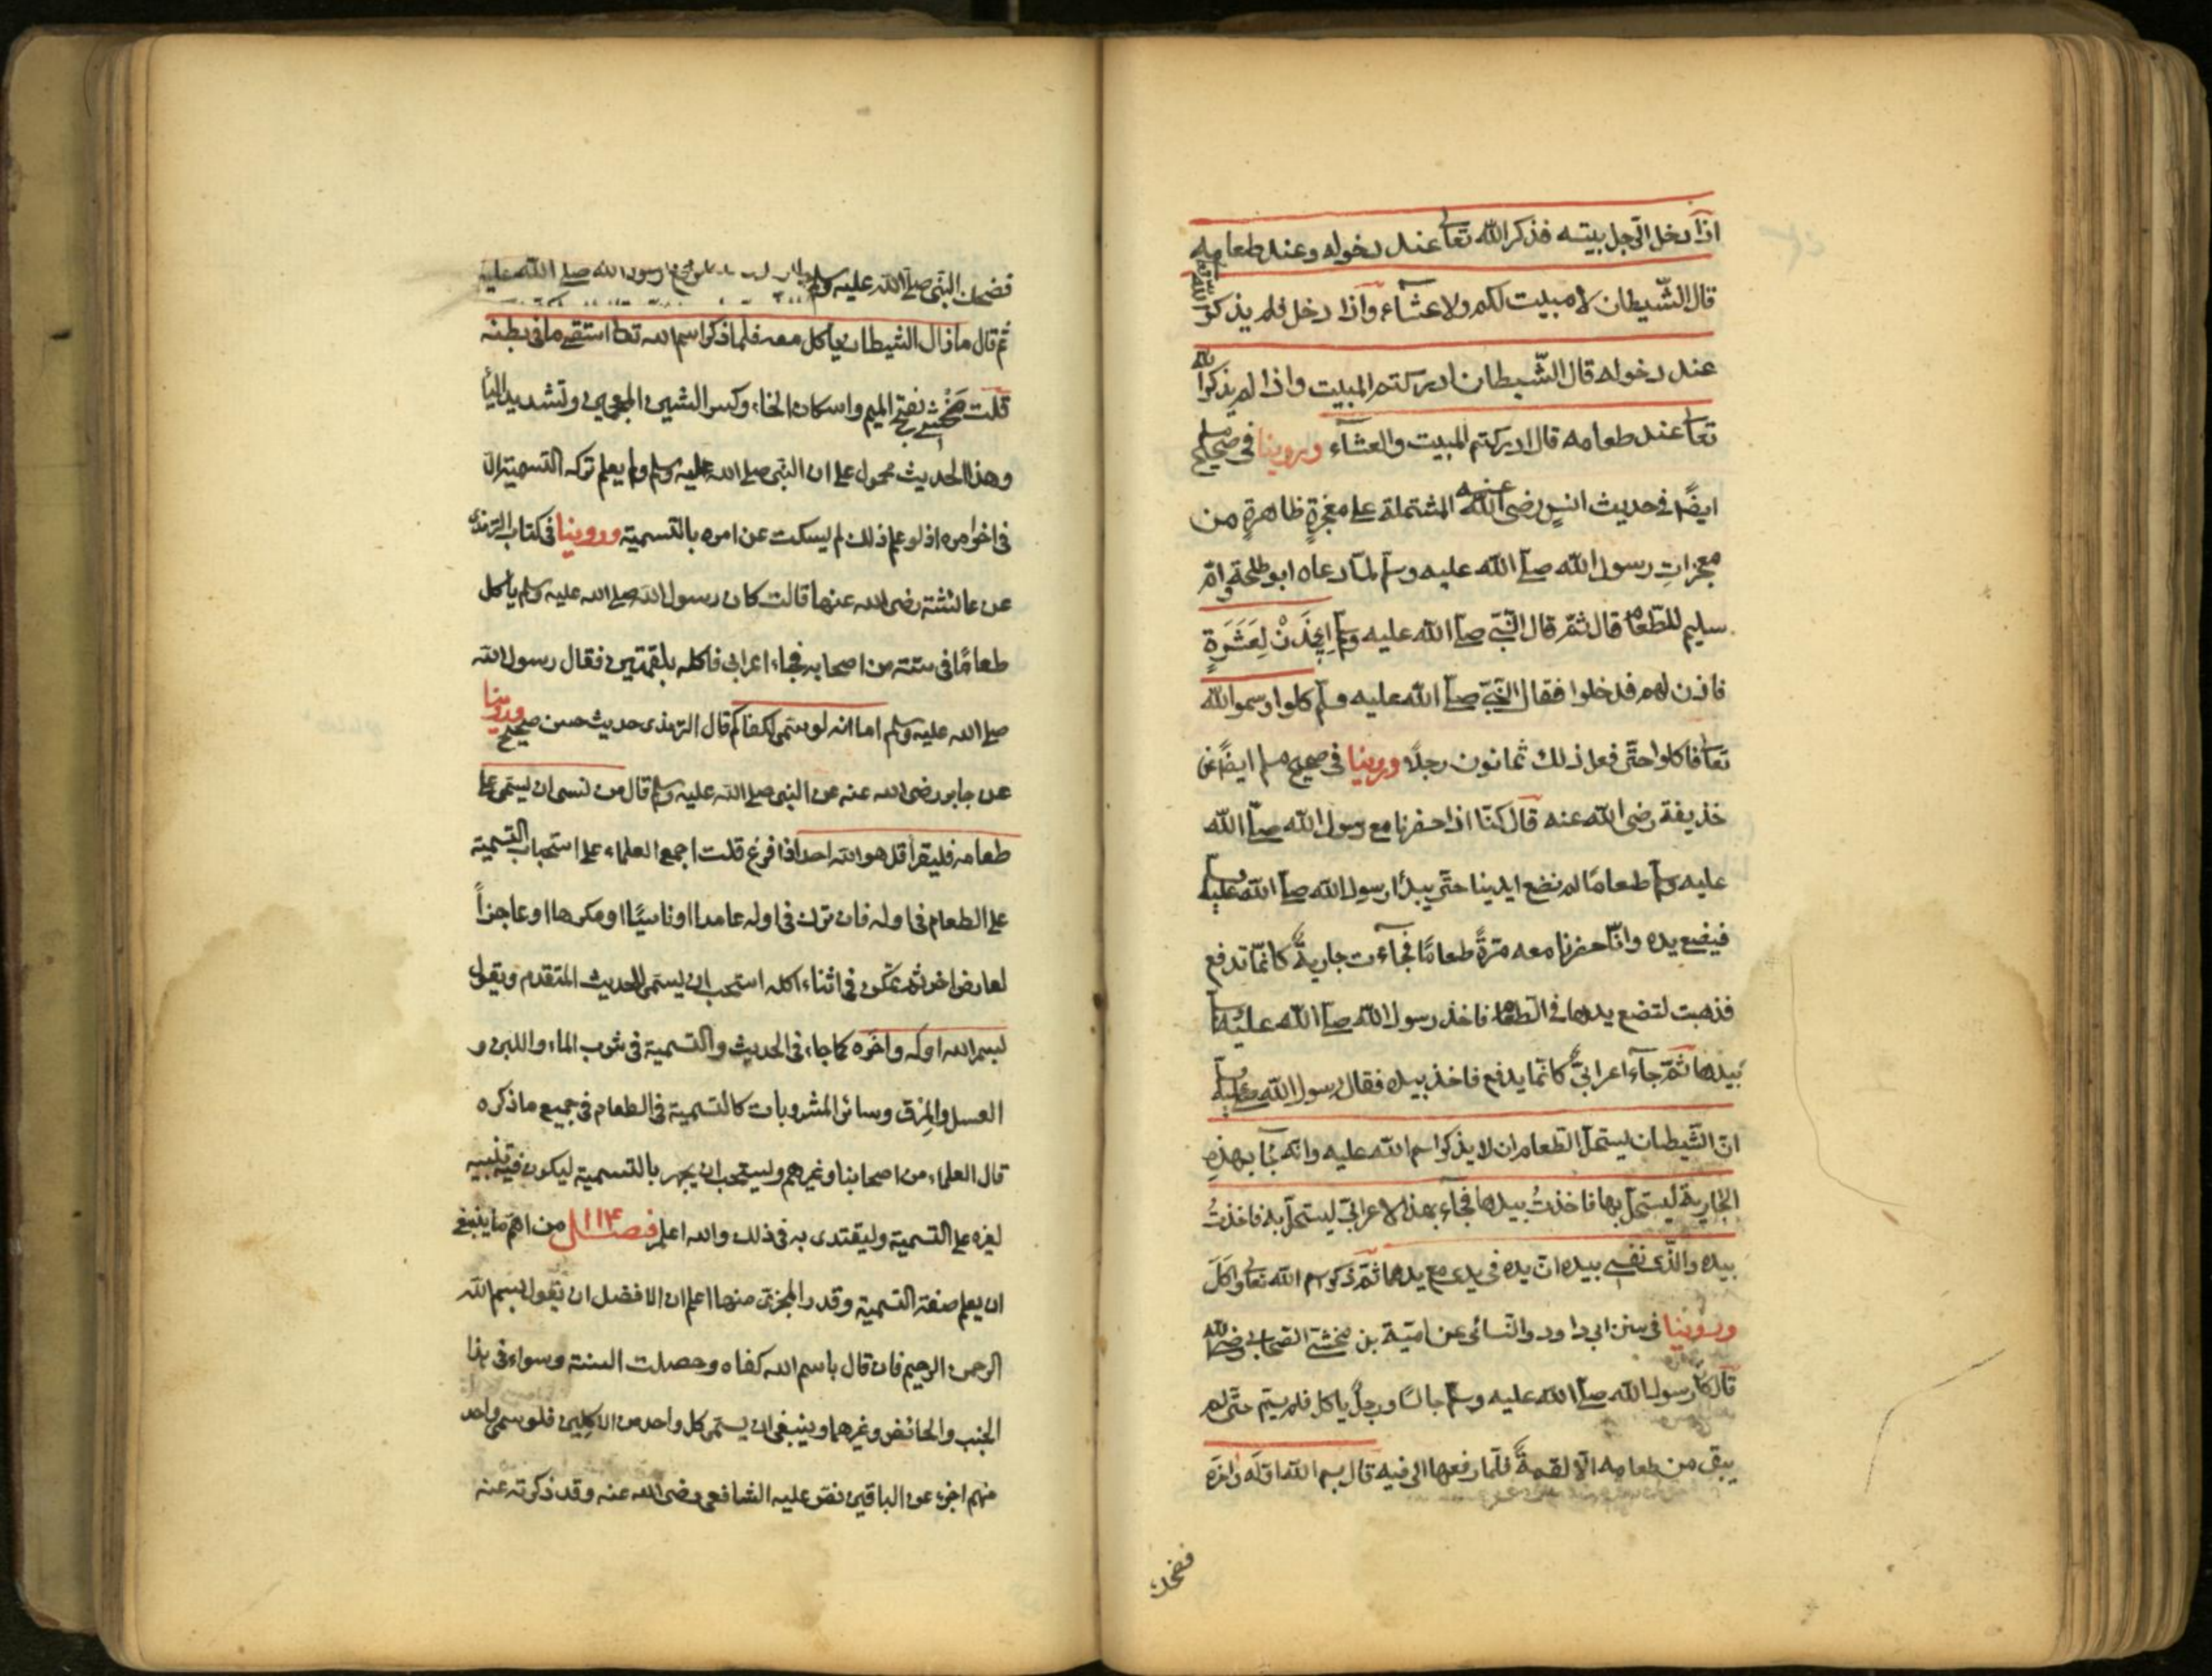 اذا دخل الرجل بيته فذكر الله تعالى عند دخوله وعند طعامه
قال الشّيطان لا مبيت لكم ولا عشاء واذا دخل فلم يذكر الله تعالى
عند دخوله قال الشّيطان ادركتم المبيت واذا لم يذكر الله
تعالى عند طعامه قال ادركتم المبيت والعشآء وروينا في صحيح مسلم
ايضًا في حديث انسٍ رضى الله عنه المشتملة على معجزةٍ ظاهرةٍ من
معجزاتِ رسول الله صلى الله عليه وسلم لمّا دعاه ابو طلحة وامّ
سليم للطّعام قال ثمّ قال النّبىّ صلى الله عليه وسلم اِيْذَنْ لِعَشَرَةٍ
فاذن لهم فدخلوا فقال النّبىّ صلى الله عليه وسلم كلوا وسموا الله
تعالى فاكلوا حتّى فعل ذلك ثمانون رجلًا وروينا في صحيح مسلم ايضًا عن
خذيفة رضى الله عنه قال كنّا اذا حضرنا مع رسول الله صلى الله
عليه وسلم طعامًا لم نضع ايدينا حتّى يبدأ رسول الله صلى الله عليه وسلم
فيضع يده وانّا حضرنا معه مرّةً طعامًا فجآءت جاريةٌ كانّما تدفع
فذهبت لتضع يدها في الطعام فاخذ رسول الله صلى الله عليه وسلم
بيدها ثمّ جآء اعرابىّ كانّما يدفع فاخذ بيده فقال رسول الله صلى الله عليه وسلم
انّ الشّيطان ليستحلّ الطّعام ان لا يذكر اسم الله عليه وانه جآء بهذه
الجارية ليستحلّ بها فاخذتُ بيدها فجآء بهذا الاعرابىّ ليستحلّ به فاخذتُ
بيده والّذى نفسى بيده انّ يده في يدى مع يدهما ثمّ ذكر اسم الله تعالى واكلَ
وروينا في سنن ابى داود والنّسائى عن اميّة بن مخشىّ الصّحابى رضى الله
قال كان رسول الله صلى الله عليه وسلم جالسًا ورجلٌ ياكل فلم يسمّ حتّى لم
يبق من طعامه الّا لقمةٌ فلمّا رفعها الى فيه قال بسم الله اوّله واخره
فضحك
فضحك النبى صلى الله عليه وسلم
ثم قال ما زال الشيطان ياكل معه فلما ذكر اسم الله تعالى استقى ما في بطنه
قلت مخشى بفتح الميم واسكان الخاء وكسر الشين المعجمين وتشديد اليا
وهذا الحديث محمول على ان النبى صلى الله عليه وسلم ولم يعلم تركه التسمية الا
في اخر امره اذ لو علم ذلك لم يسكت عن امره بالتسمية وروينا في كتاب الترمذى
عن عائشة رضى الله عنها قالت كان رسول الله صلى الله عليه وسلم ياكل
طعامًا في ستة من اصحابه فجاء اعرابى فاكله بلقمتين فقال رسول الله
صلى الله عليه وسلم اما انه لو سمى لكفاكم قال الترمذى حديث حسن صحيح وروينا
عن جابر رضى الله عنه عن النبى صلى الله عليه وسلم قال من نسى ان يسمى على
طعامه فليقرأ قل هو الله احد اذا فرغ قلت اجمع العلماء على استحباب التسمية
على الطعام في اوله فان ترك في اوله عامدا او ناسيًا او مكرها او عاجزاً
لعارض اخر ثم تمكن في اثناء اكله استحب ان يسمى للحديث المتقدم ويقول
بسم الله اوله واخره كما جاء في الحديث والتسمية في شرب الماء واللبن و
العسل والمرق وسائر المشروبات كالتسمية في الطعام في جميع ما ذكره
قال العلماء من اصحابنا وغيرهم ويستحب ان يجهر بالتسمية ليكون فيه تنبيه
لغيره على التسمية وليقتدى به في ذلك والله اعلم فصل ١١٤ من اهم ما ينبغى
ان يعلم صفة التسمية وقدر المجزى منها اعلم ان الافضل ان يقول بسم الله
الرحمن الرحيم فان قال باسم الله كفاه وحصلت السنة وسواء في هذا
الجنب والحائض وغيرهما وينبغى ان يسمى كل واحد من الاكلين فلو سمى واحد
منهم اجزء عن الباقين نص عليه الشافعى رضى الله عنه وقد ذكرته عنه